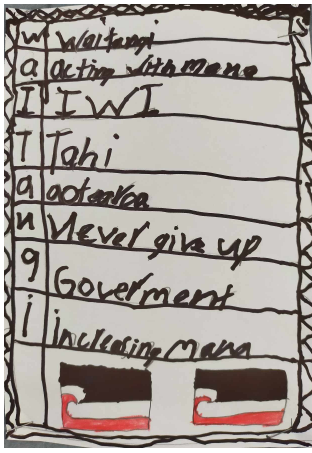 W Waitangi
a acting with mana
I IWI
T Tahi
a aotearoa
n Never give up
g Goverment
i increasing Mana